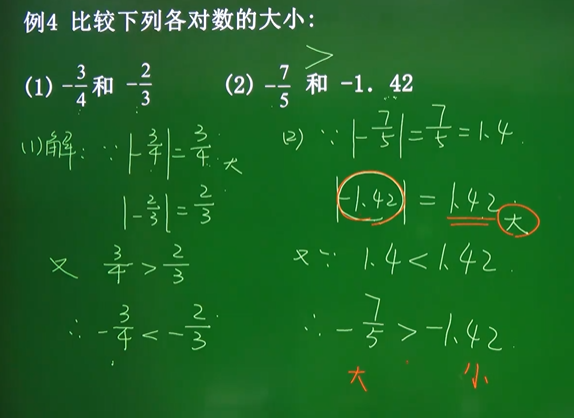 例4 比较下列各对数的大小:
(1) -3/4和 -2/3 (2) -7/5 > 和 -1.42
(1)解: ∵ |-3/4| = 3/4. 大
|-2/3| = 2/3
又 3/4 > 2/3
∴ -3/4 < -2/3.
(2) ∵ |-7/5| = 7/5 = 1.4.
|-1.42| = 1.42. 大
又∵ 1.4 < 1.42.
∴ -7/5 > -1.42.
大 小